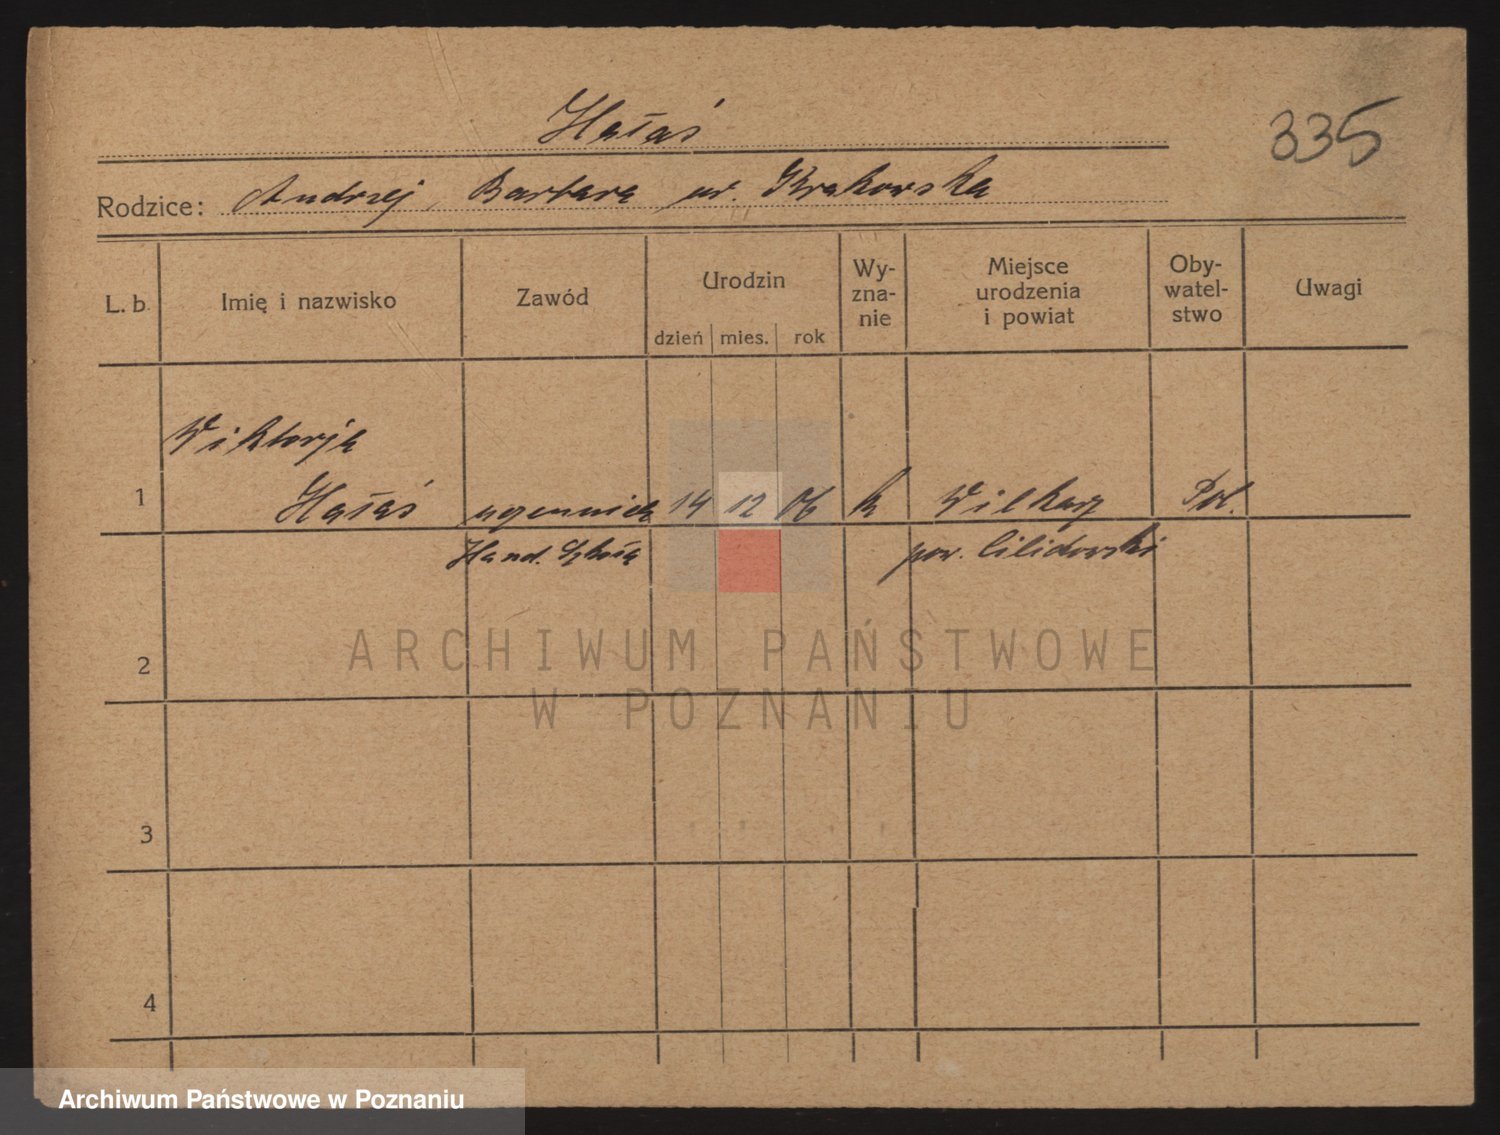 Hałaś
335
Rodzice: Andrzej, Barbara ur. Krakowska
L. b. Imię i nazwisko Zawód Urodzin dzień mies. rok Wy-zna-nie Miejsce urodzenia i powiat Oby-watel-stwo Uwagi
Wiktorja
1 Hałaś uczennica 14 12 06 k Pol.
Hand. Szkoła pow.
2
ARCHIWUM PAŃSTWOWE
W POZNANIU
3
4
Archiwum Państwowe w Poznaniu